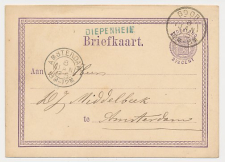 DIEPENHEIM
Briefkaart.
GOOR
AMSTERDAM
Aan Heer
D J Middelbeek
te Amsterdam